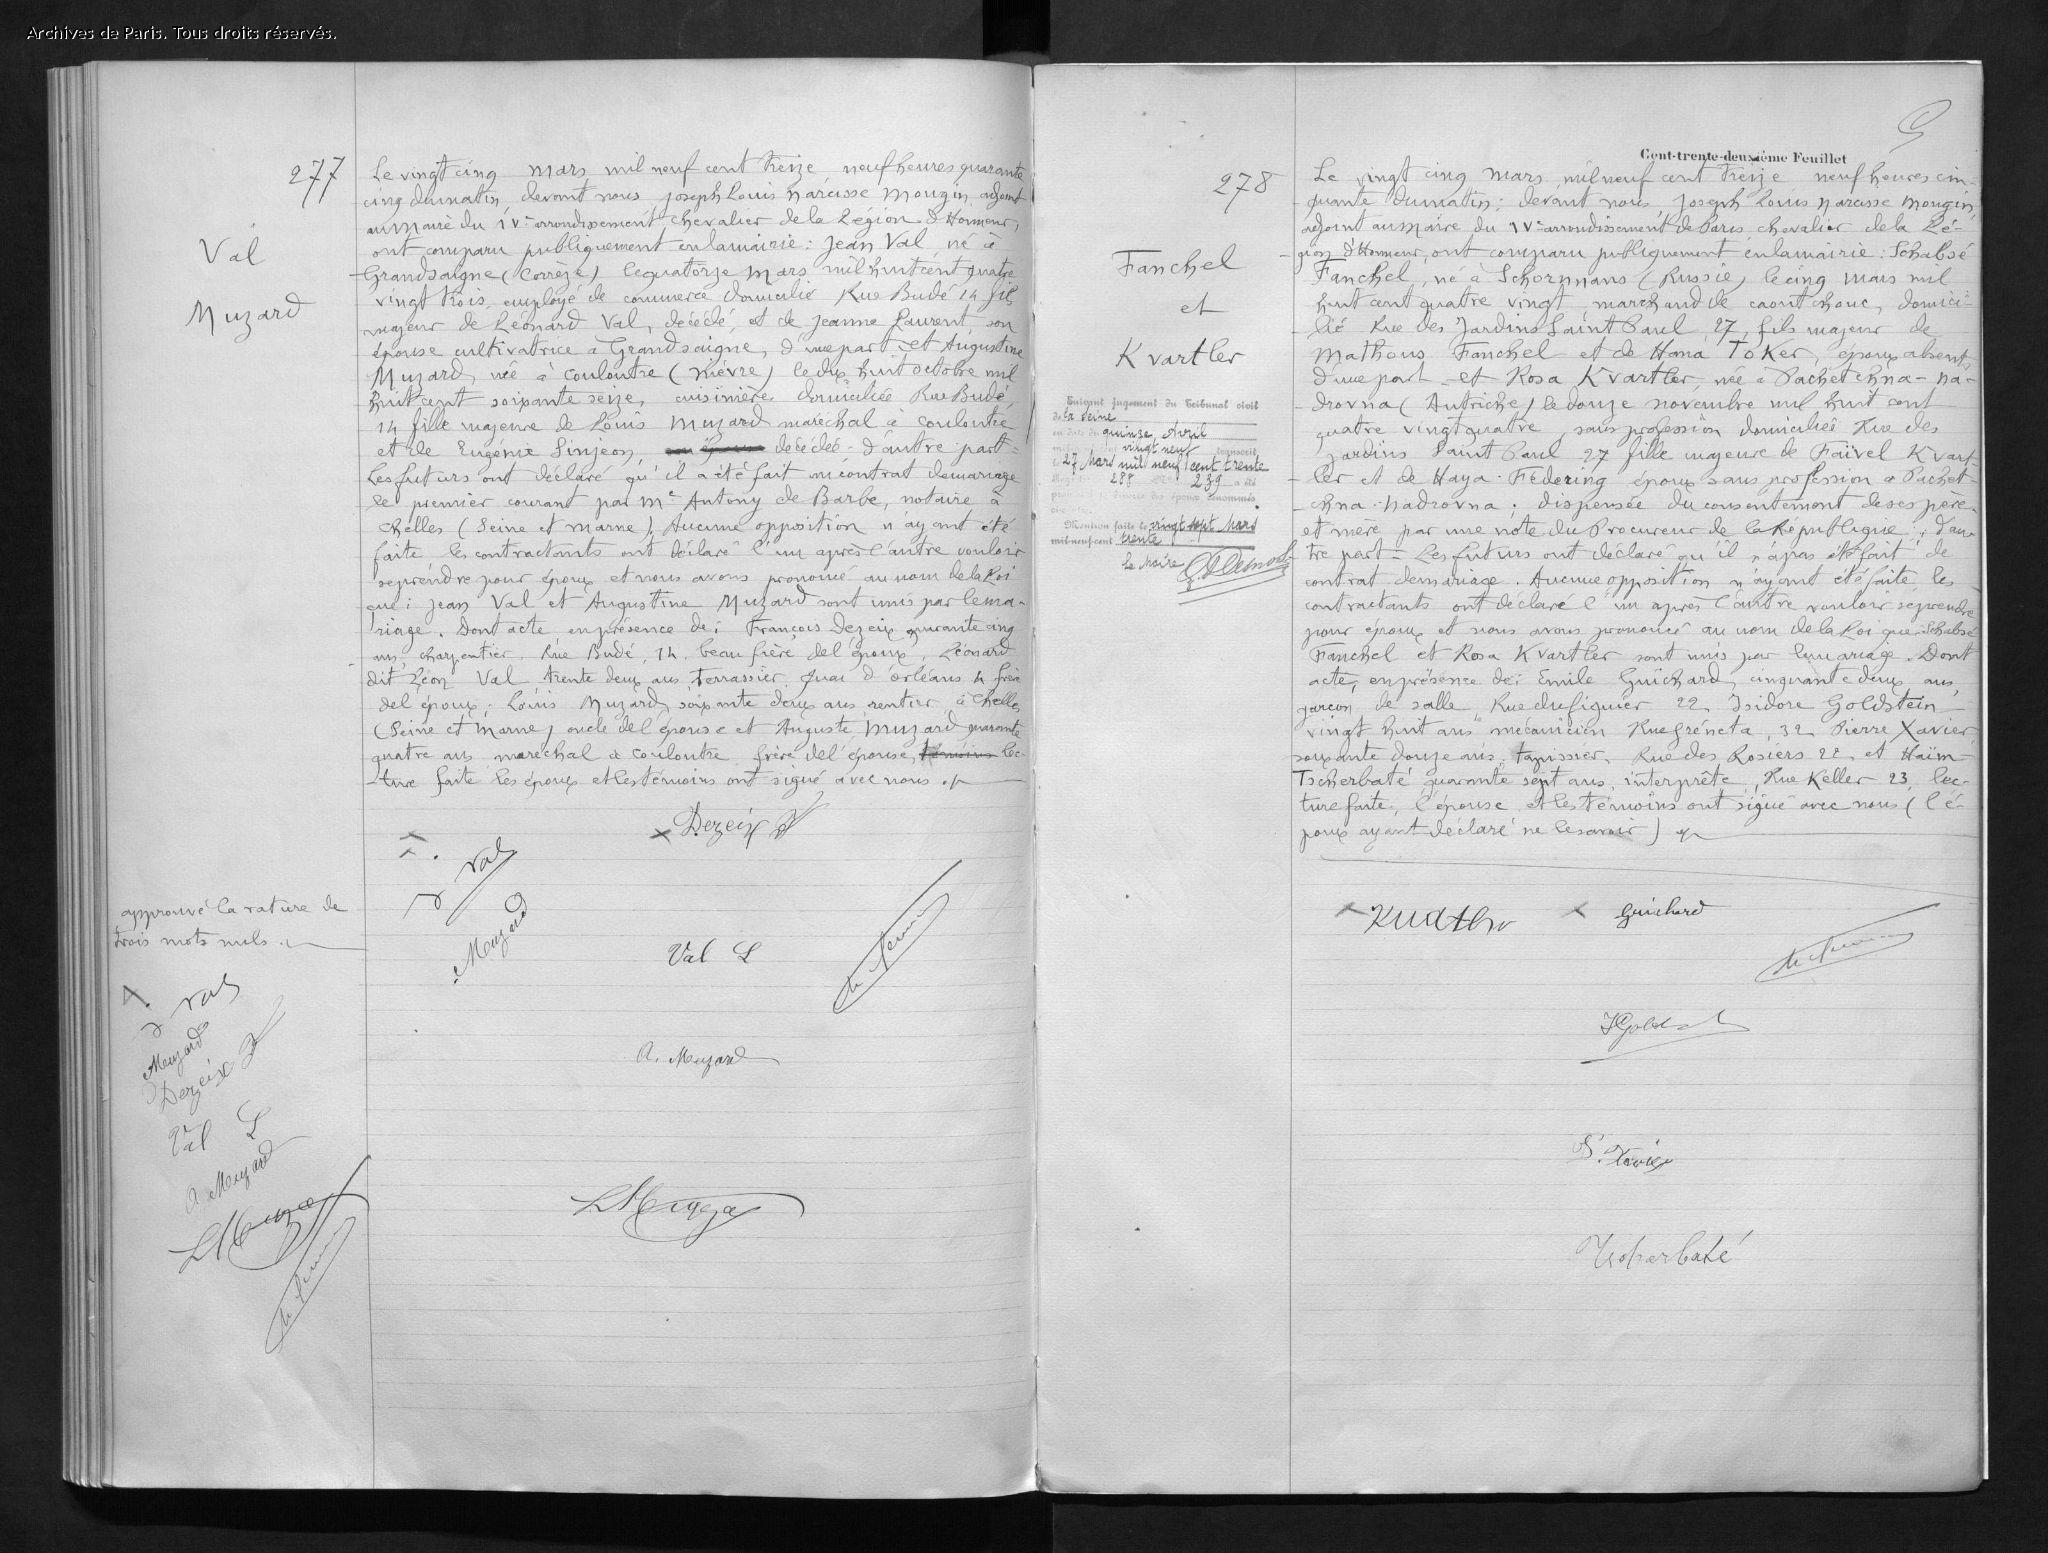 Archives de Paris. Tous droits réservés.
277
Val
Muzard
Le vingt cinq mars mil neuf cent treize, neuf heures quarante
cinq du matin, devant nous Joseph Louis Narcisse Mougin adjoint
au maire du IVe arrondissement chevalier de la Légion d'Honneur,
ont comparu publiquement en la mairie: Jean Val, né à
Grandsaigne (Corrèze) le quatorze mars mil huit cent quatre
vingt trois, employé de commerce domicilié Rue Budé 14 fils
majeur de Léonard Val, décédé, et de Jeanne Laurent, son
épouse cultivatrice à Grandsaigne, d'une part et Augustine
Muzard, née à Couloutre (Nièvre) le dix huit octobre mil
huit cent soixante seize, cuisinière domiciliée Rue Budé,
14 fille majeure de Louis Muzard maréchal à Couloutre
et de Eugénie Linjeon, son épouse décédée; d'autre part =
Les futurs ont déclaré qu'il a été fait un contrat de mariage
le premier courant par Me Antony de Barbe, notaire à
Chelles (Seine et Marne). Aucune opposition n'ayant été
faite les contractants ont déclaré l'un après l'autre vouloir
se prendre pour époux et nous avons prononcé au nom de la Loi
que: Jean Val et Augustine Muzard sont unis par le ma-
riage. Dont acte en présence de: François Dezeix quarante cinq
ans, charpentier, Rue Budé, 14, beau frère de l'époux, Léonard
dit Léon Val trente deux ans, terrassier, Quai d'Orléans 4 frère
de l'époux; Louis Muzard, soixante deux ans rentier, à Chelles
(Seine et Marne) oncle de l'épouse et Auguste Muzard quarante
quatre ans maréchal à Couloutre frère de l'épouse, témoins lec-
ture faite les époux et les témoins ont signé avec nous.
Dezeix
Val
Muzard
Val L
A. Muzard
approuvé la rature de
trois mots nuls.
Val
Muzard
Dezeix
Val L
A. Muzard
Cent-trente-deuxième Feuillet
278
Fanchel
et
Kvartler
Suivant jugement du Tribunal civil
de la Seine
en date du quinze Avril
mil neuf cent vingt neuf transcrit
le 27 Mars mil neuf cent trente
288 239 a été
prononcé le divorce des époux dénommés
ci-contre.
Mention faite le vingt sept Mars
mil neuf cent trente
Le Maire
Le vingt cinq mars mil neuf cent treize neuf heures cin-
quante du matin; devant nous, Joseph Louis Narcisse Mougin,
adjoint au maire du IVe arrondissement de Paris chevalier de la Lé-
gion d'Honneur, ont comparu publiquement en la mairie: Schabsé
Fanchel, né à Schornnans (Russie) le cinq mars mil
huit cent quatre vingt, marchand de caoutchouc, domici-
lié Rue des Jardins Saint Paul 27, fils majeur de
Mathous Fanchel et de Hana Toker, époux absents
d'une part et Rosa Kvartler, née à Pachetchna-na-
drovna (Autriche) le douze novembre mil huit cent
quatre vingt quatre, sans profession domiciliée Rue des
Jardins Saint Paul 27 fille majeure de Faïvel Kvart-
ler et de Haya Federing époux sans profession à Pachet-
chna-nadrovna; dispensée du consentement de ses père
et mère par une note du Procureur de la République; d'au-
tre part = Les futurs ont déclaré qu'il n'a pas été fait de
contrat de mariage. Aucune opposition n'ayant été faite les
contractants ont déclaré l'un après l'autre vouloir se prendre
pour époux et nous avons prononcé au nom de la Loi que: Schabsé
Fanchel et Rosa Kvartler sont unis par le mariage. Dont
acte, en présence de: Emile Guichard, cinquante deux ans,
garçon de salle, Rue du figuier 22, Isidore Goldstein
vingt huit ans mécanicien Rue Gréneta, 32 Pierre Xavier
soixante douze ans, tapissier, Rue des Rosiers 22 et Haïm
Tscherbaté quarante sept ans, interprête, Rue Keller 23, lec-
ture faite, l'épouse et les témoins ont signé avec nous (l'é-
poux ayant déclaré ne le savoir)
Guichard
P. Xavier
Tscherbaté